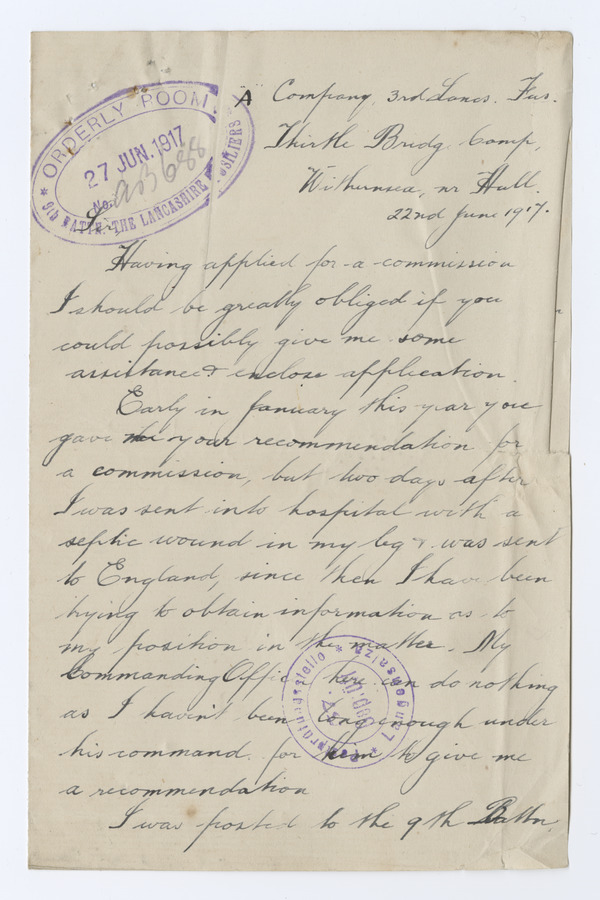 "A" Company, 3rd Lancs. Fus.
Thirtle Bridg. Camp,
Withernsea, nr Hull.
22nd June 1917.
ORDERLY ROOM
27 JUN. 1917
No.
9th BATTN. THE LANCASHIRE FUSILIERS
Sir,
Having applied for a commission
I should be greatly obliged if you
could possibly give me some
assistance & enclose application.
Early in January this year you
gave me your recommendation for
a commission, but two days after
I was sent into hospital with a
septic wound in my leg & was sent
to England, since then I have been
trying to obtain information as to
my position in the matter. My
Commanding Officer here can do nothing
as I haven't been long enough under
his command for him to give me
a recommendation
I was posted to the 9th Battn.